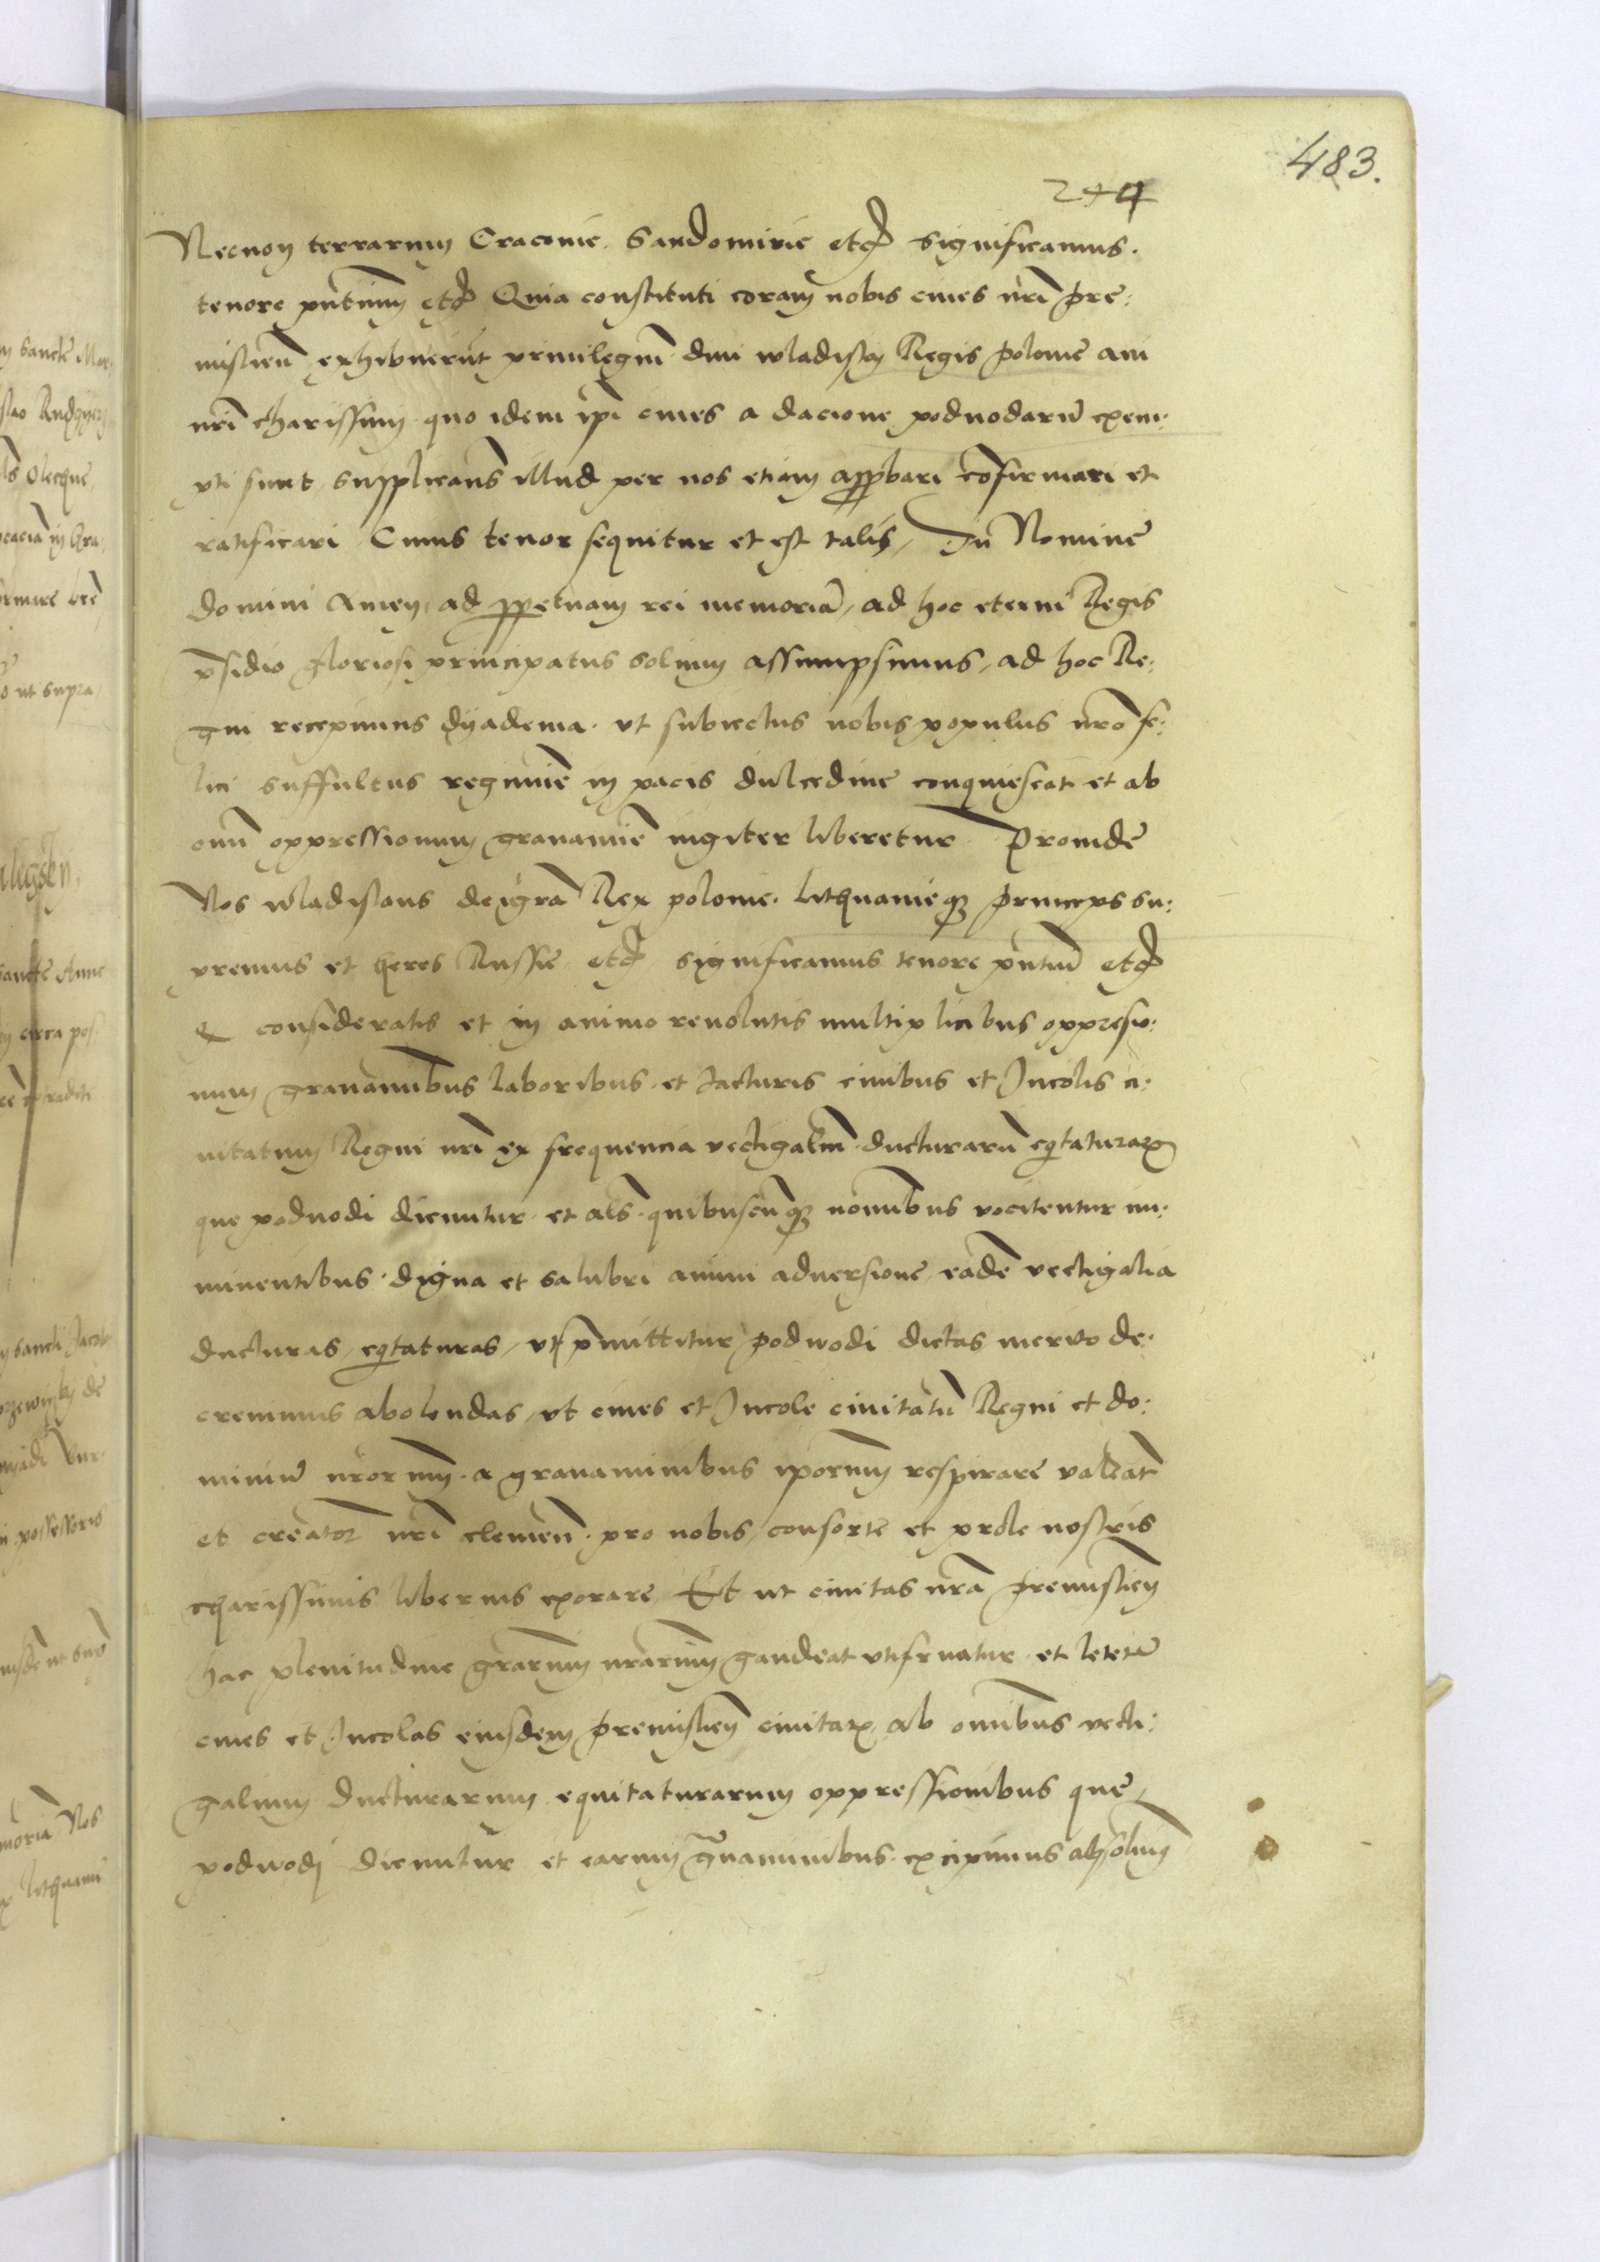 483.
244
Necnon terrarum Cracovie. Sandomirie etc significamus.
tenore pn̄tium etc Quia constituti coram nobis cives nr̄i Pre:
mislien̄ exhibuerūt privilegiū dnī wladislai Regis polonie avi
nr̄i charissimi quo idem ip̄i cives a dacione podvodarū exem:
pti sunt supplicans̄ illud per nos etiam app̄bari cōfirmari et
ratificari Cuius tenor sequitur et est talis, In Nomine
domini Amen, ad pp̄etuam rei memoriā, ad hoc eterni Regis
p̄sidio gloriosi principatus solium assumpsimus, ad hoc Re:
gni recepimus dyadema. ut subiectus nobis populus nr̄o fe:
lici suffultus regimīe in pacis dulcedine conquiescat et ab
om̄i oppressionum gravamīe iugiter liberetur Proinde
Nos wladislaus dei gr̄a Rex polonie. lithuanieq̨ princeps su:
premus et heres Russie etc significamus tenore pn̄tiū etc
Q consideratis et in animo revolutis multiplicibus oppresio:
num gravamībus laboribus et Iacturis civibus et Incolis ci:
vitatum Regni nr̄i ex frequencia vectigaliū ducturarū eq̄taturarꝝ
que podvodi dicuntur et als̄ quibuscūq̨ nomībus vocitentur im:
minentibus. digna et salubri animi adversione eadē vectigalia
ducturas, eq̄taturas, ut p̄mittitur podwodi dictas merito de:
crevimus abolendas, ut cives et Incole civitatū Regni et do:
miniū nr̄orum. a gravaminibus ip̄orum respirare valeāt
et creator̄ nr̄i clemen̄. pro nobis, consorte et prole nostris
charissimis liberius exorare, Et ut civitas nr̄a Premislien̄
hac plenitudine gr̄arum nr̄arum gaudeat utifruatur et letetur
cives et Incolas eiusdem Premislien̄ civitatꝭ ab om̄ibus vecti:
galium ducturarum equitaturarum oppressionibus que,
podwodi dicuntur et earum gravaminibus. excipimus absolvim̄